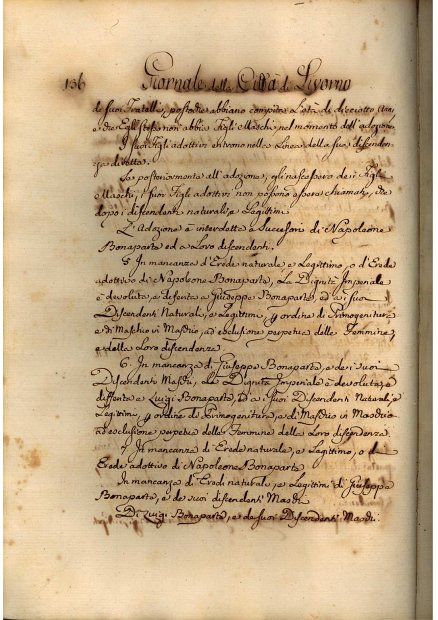 136 Giornale della Città di Livorno
de suoi Fratelli, postoche abbiano compito L'età di diciotto Anni
e che Egli stesso non abbia Figli Maschi nel momento dell'adozione
I suoi Figli adottivi entrono nella Linea della sua discenden-
za diretta.
Se posteriormente all'adozione, gli nascessero de i Figli
Maschi, i suoi Figli adottivi non possono essere chiamati, che
dopo i discendenti naturali e Legittimi
L'Adozione è interdetta a Successori di Napoleone
Bonaparta ed a Loro discendenti.
5 In mancanza d'Erede naturale e Legittimo, o d'Erede
adottivo di Napoleone Bonaparta, La Dignità Imperiale
è devoluta, e diferita a Giuseppe Bonaparta, ed a i suoi
Discendenti Naturali, e Legittimi, per ordine di Primogenitura
e di Maschio in Maschio, ad esclusione perpetua delle Femmine,
e della Loro discendenza
6. In mancanza di Giuseppe Bonaparta, e de i suoi
Discendenti Maschi, La Dignità Imperiale è devoluta, e
differita a Luigi Bonaparta, ed a i suoi Discendenti Naturali, e
Legittimi, per ordine di Primogenitura, e di Maschio in Maschio
ad esclusione perpetua delle Femmine della Loro discendenza
7. In mancanza di Erede naturale, e Legittimo, o di
Erede adottivo di Napoleone Bonaparta
In mancanza di Eredi naturali, e Legittimi di Giuseppe
Bonaparta, e de suoi discendenti Maschi
Di Luigi Bonaparta, e de suoi Discendenti Maschi.